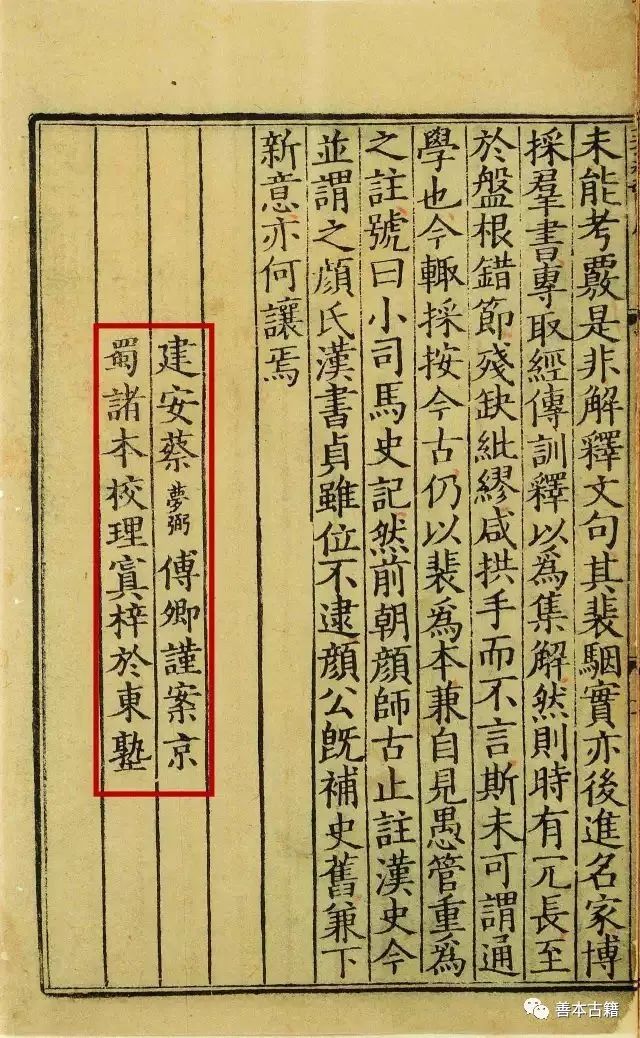 未能考覈是非解釋文句其裴駰實亦後進名家博
採羣書專取經傳訓釋以爲集解然則時有冗長至
於盤根錯節殘缺紕繆咸拱手而不言斯未可謂通
學也今輙採按今古仍以裴爲本兼自見愚管重爲
之註號曰小司馬史記然前朝顔師古止註漢史今
並謂之顔氏漢書貞雖位不逮顔公旣補史舊兼下
新意亦何讓焉
建安蔡夢弼傅卿謹案京
蜀諸本校理寘梓於東塾
善本古籍